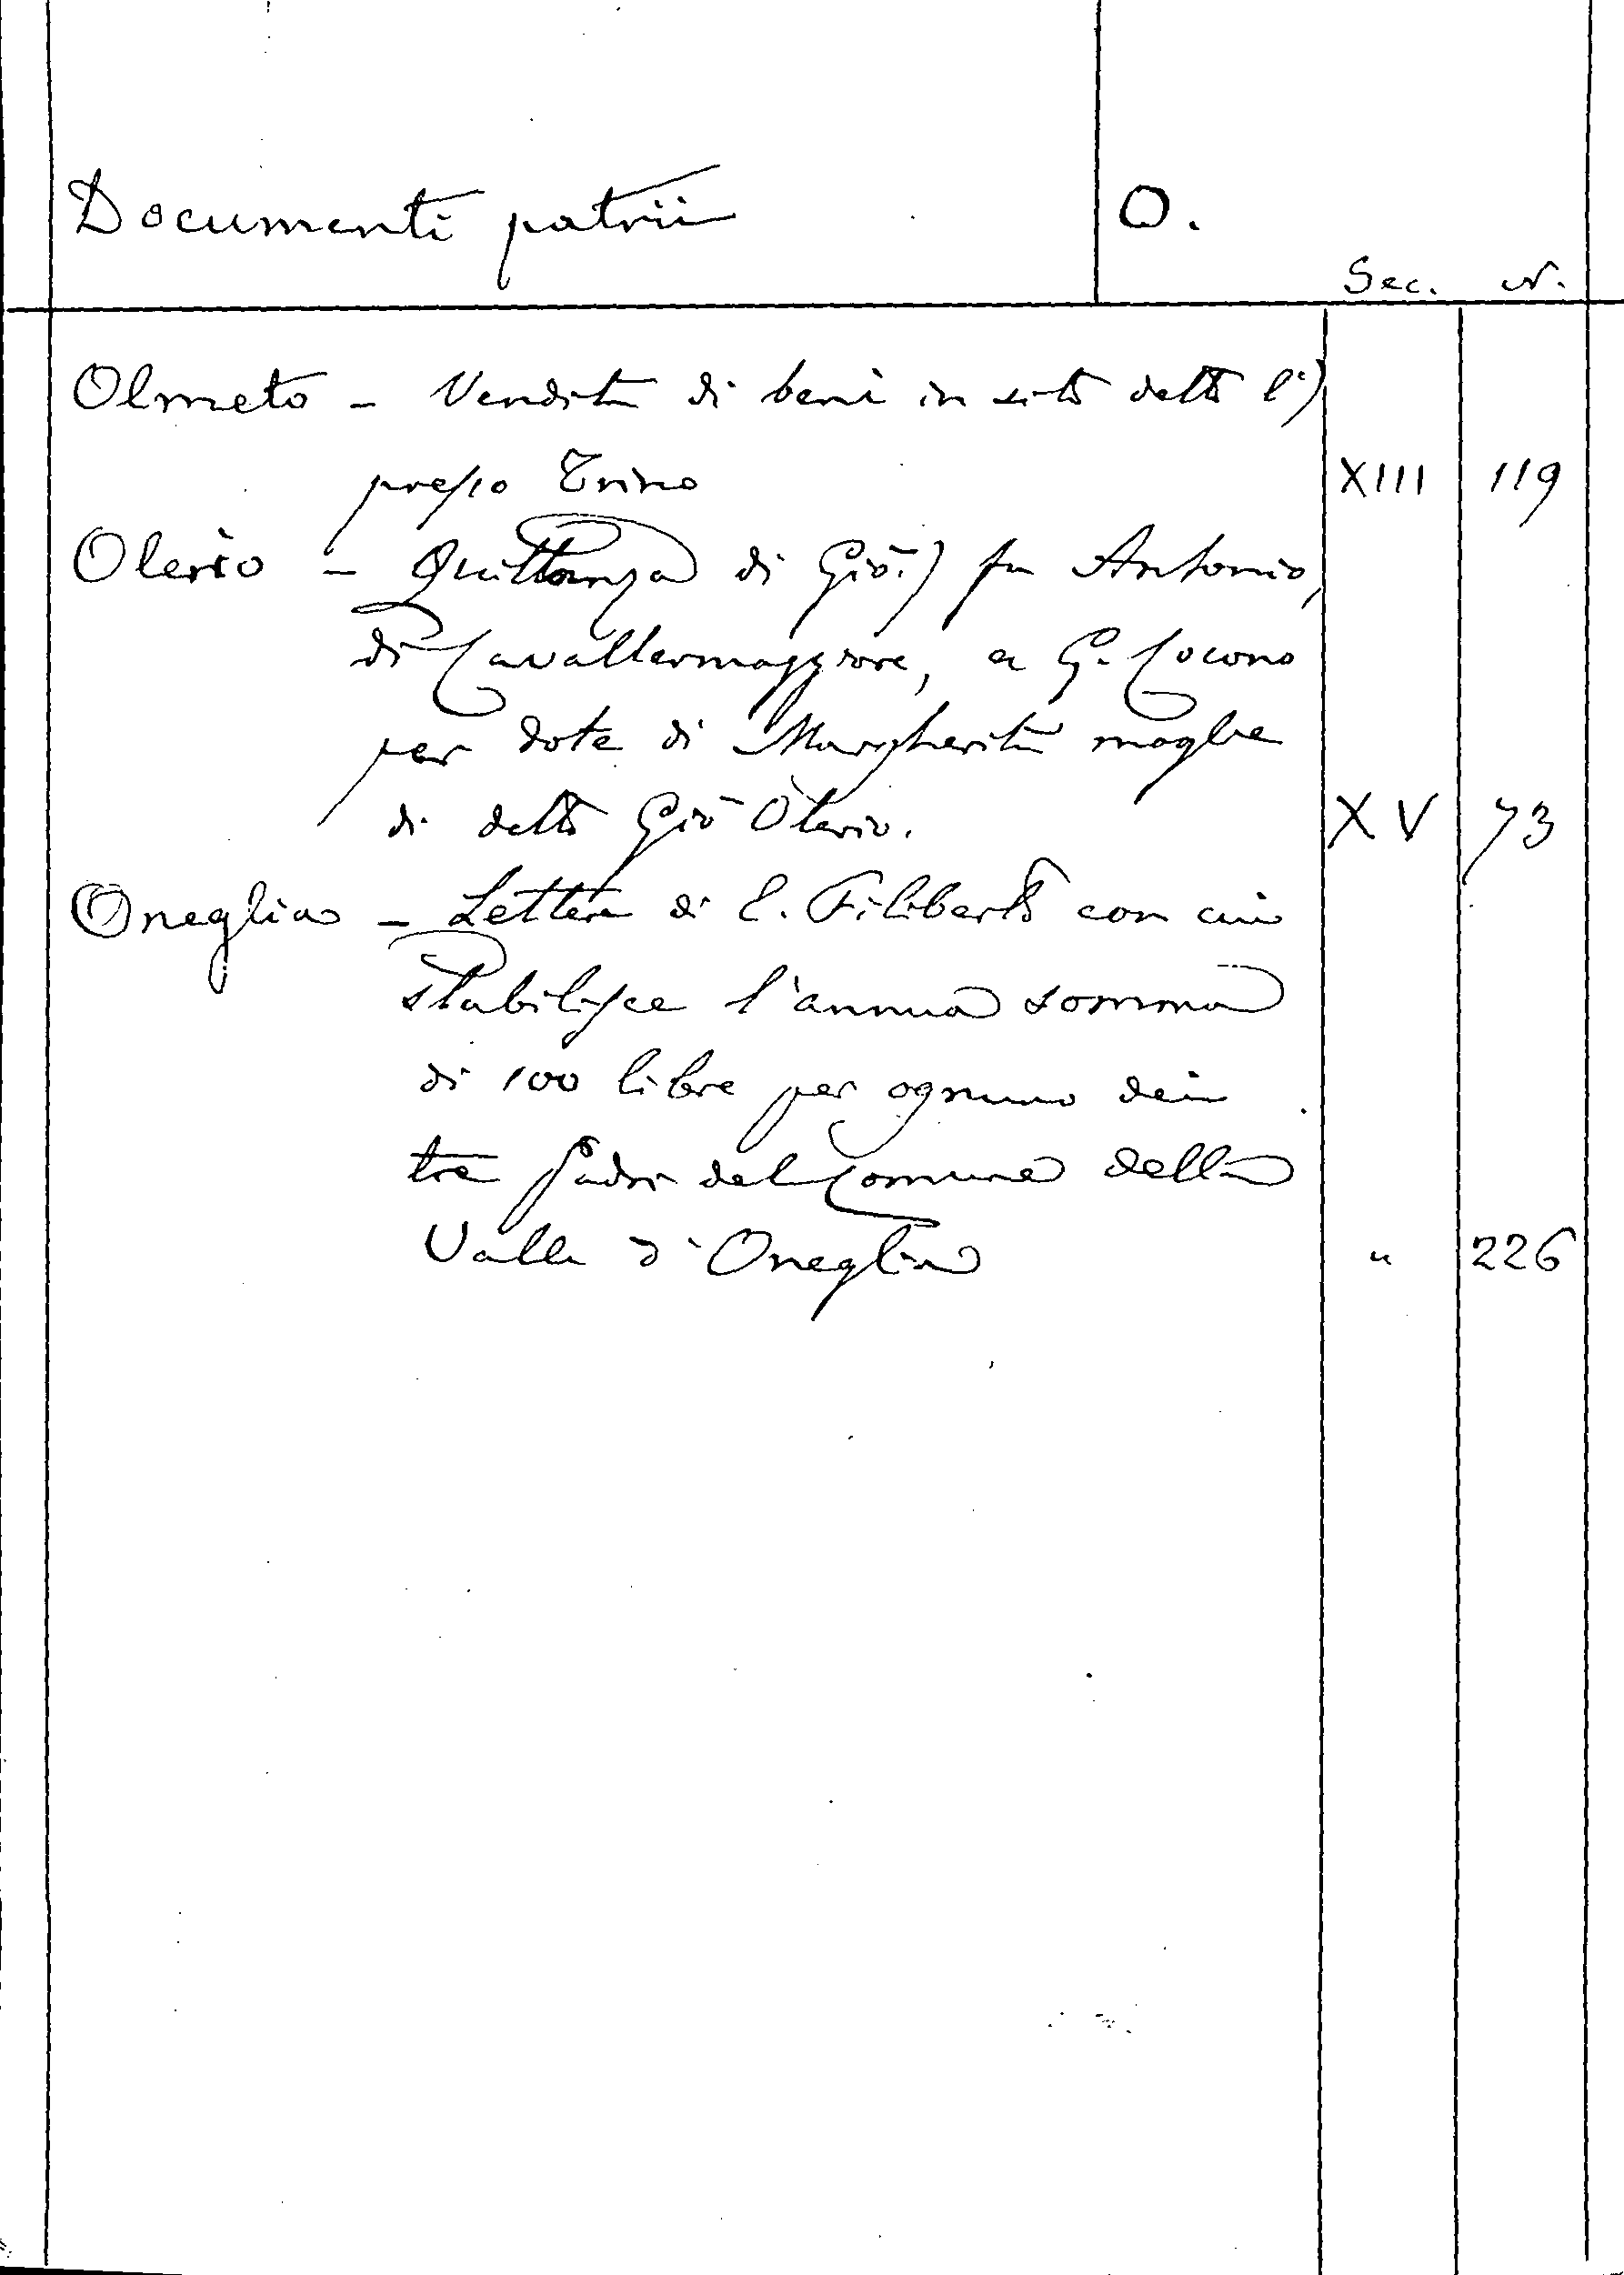 Documenti patrii O.
Sec. N.
Olmeto - Vendita di beni in sito detto l')
presso Trino XIII 119
Olerio - Quittanza di Giō.) fu Antonio,
di Cavallermaggiore, a G. Cocono
per dote di Margherita moglie
di detto Giō Olerio. XV 73
Oneglia - Lettera di E. Filiberto con cui
stabilisce l'annua somma
di 100 libre per ognuno dei
tre Padri del Comune della
Valle d'Oneglia " 226